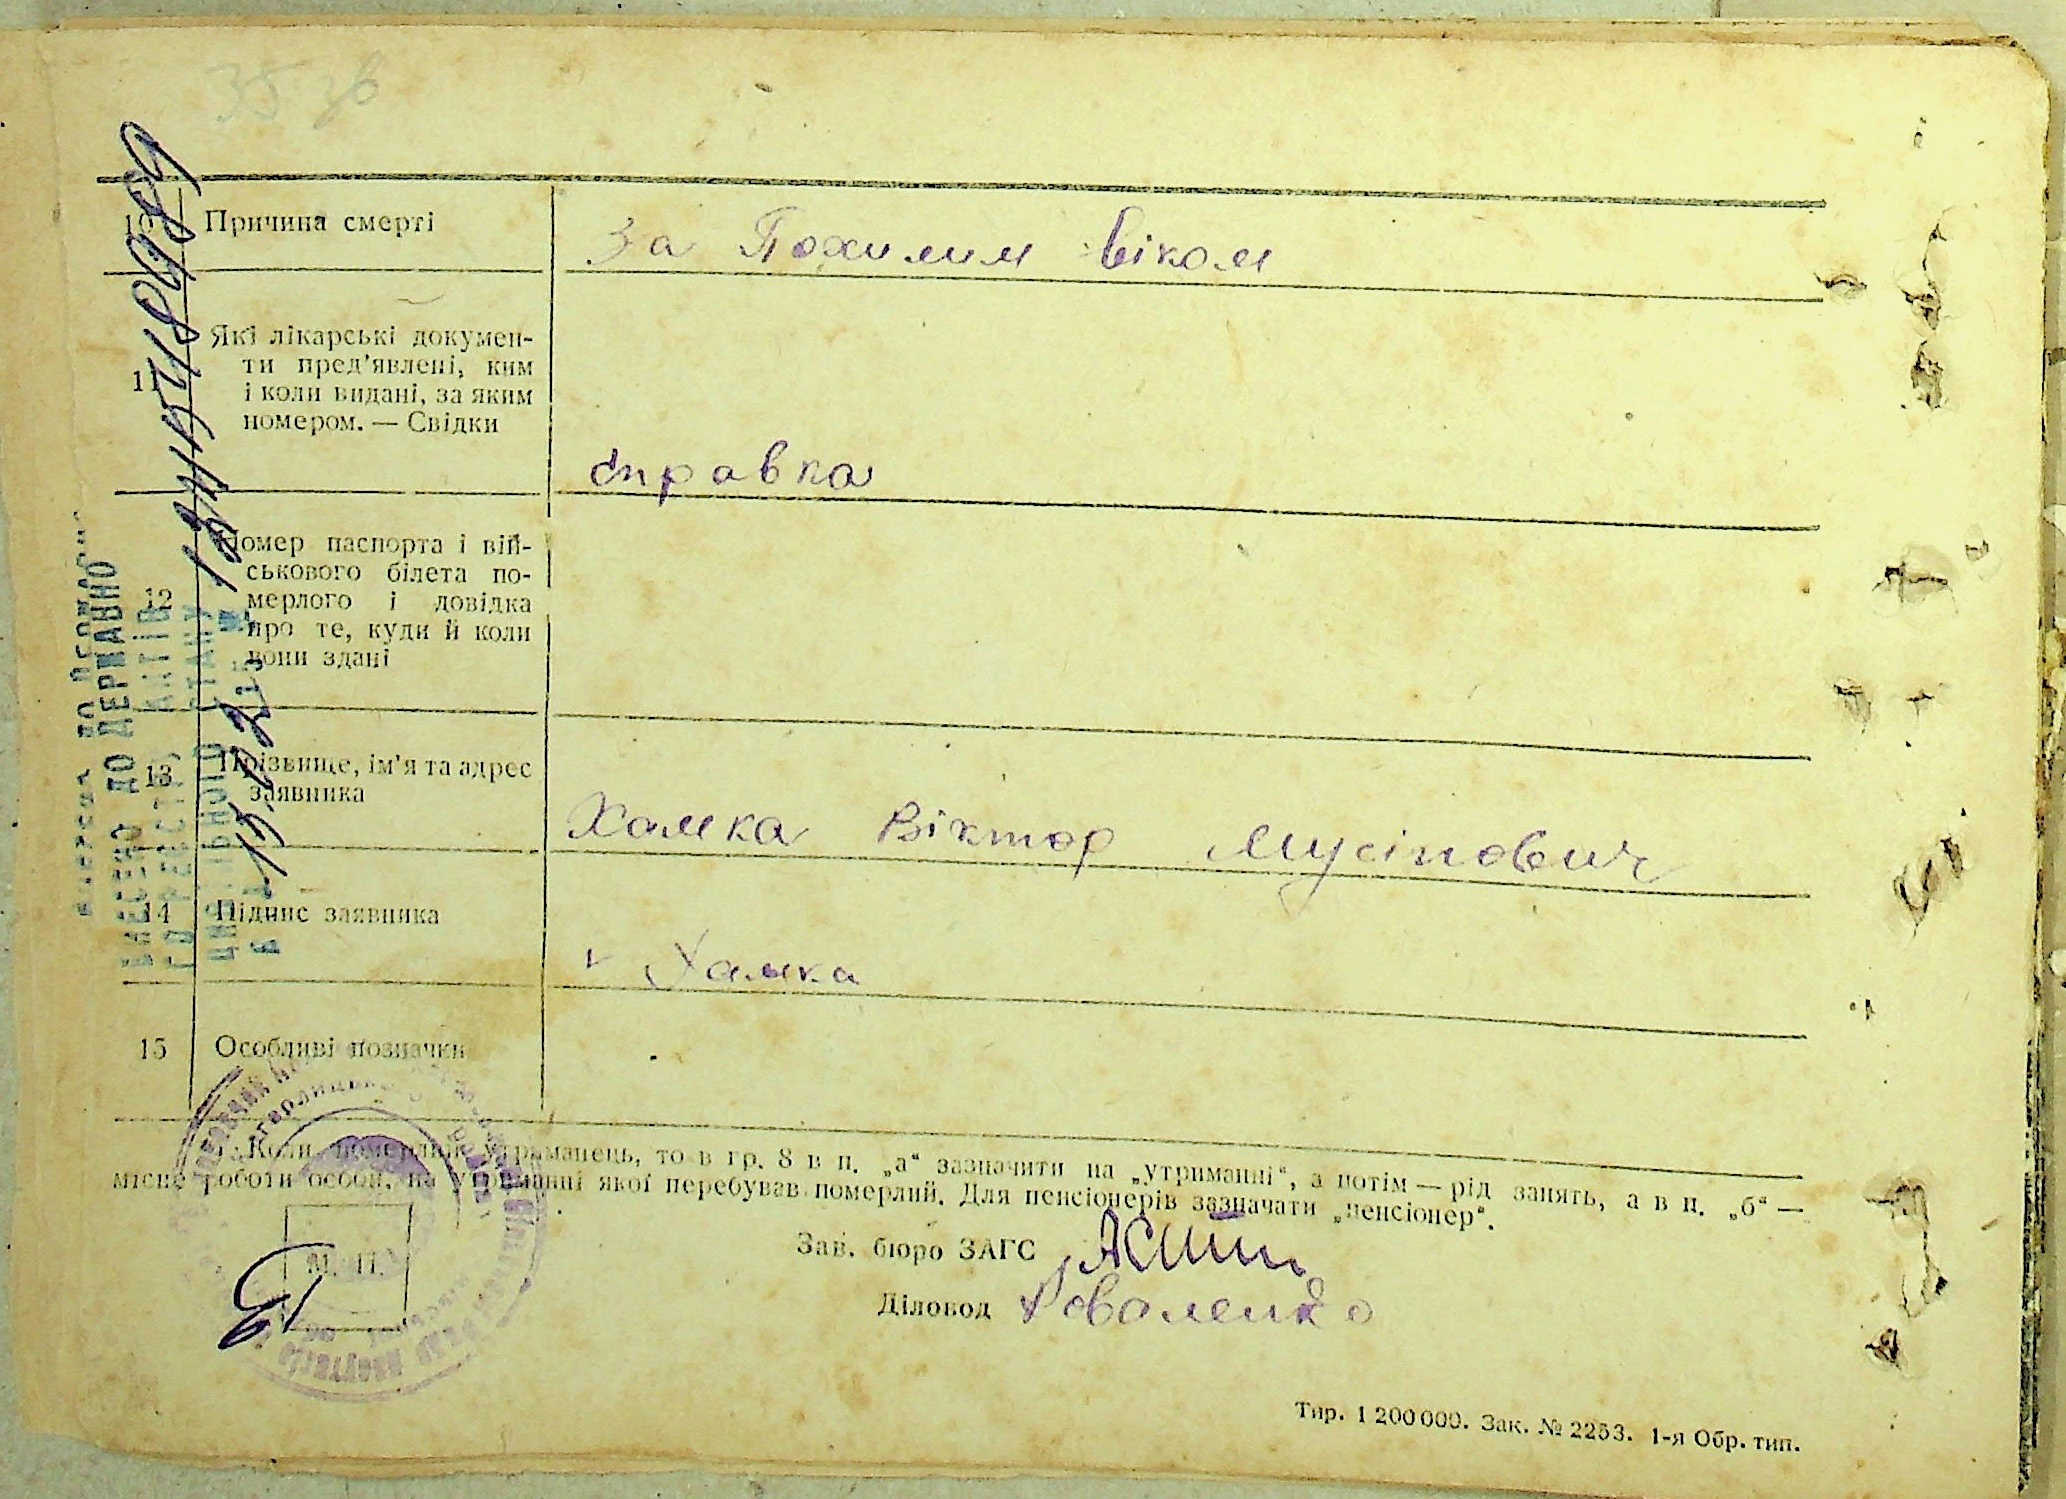 35 зв
10 Причина смерті За Похилим віком
11 Які лікарські докумен-
ти пред'явлені, ким
і коли видані, за яким
номером. — Свідки
справка
Номер паспорта і вій-
ськового білета по-
12 мерлого і довідка
про те, куди й коли
вони здані
13 Прізвище, ім'я та адрес
заявника
Хамка Віктор Мусіпович
14 Підпис заявника
Хамка
15 Особливі позначки
Коли померлий утриманець, то в гр. 8 в п. „а“ зазначити на „утриманні“, а потім — рід занять, а в п. „б“ —
місце роботи особи, на утриманні якої перебував померлий. Для пенсіонерів зазначати „пенсіонер“.
М. П.
Зав. бюро ЗАГС
Діловод Коваленко
Тир. 1 200 000. Зак. № 2253. 1-я Обр. тип.
ВНЕСЕНО ДО ДЕРЖАВНО
ГО РЕЄСТРУ АКТІВ
ЦИВІЛЬНОГО СТАНУ